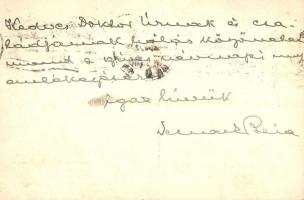 Kedves Doktor Úrnak és csa-
ládjának hálás köszönetet
mond a szíves névnapi meg-
emlékezésért
igaz hívük
Béla